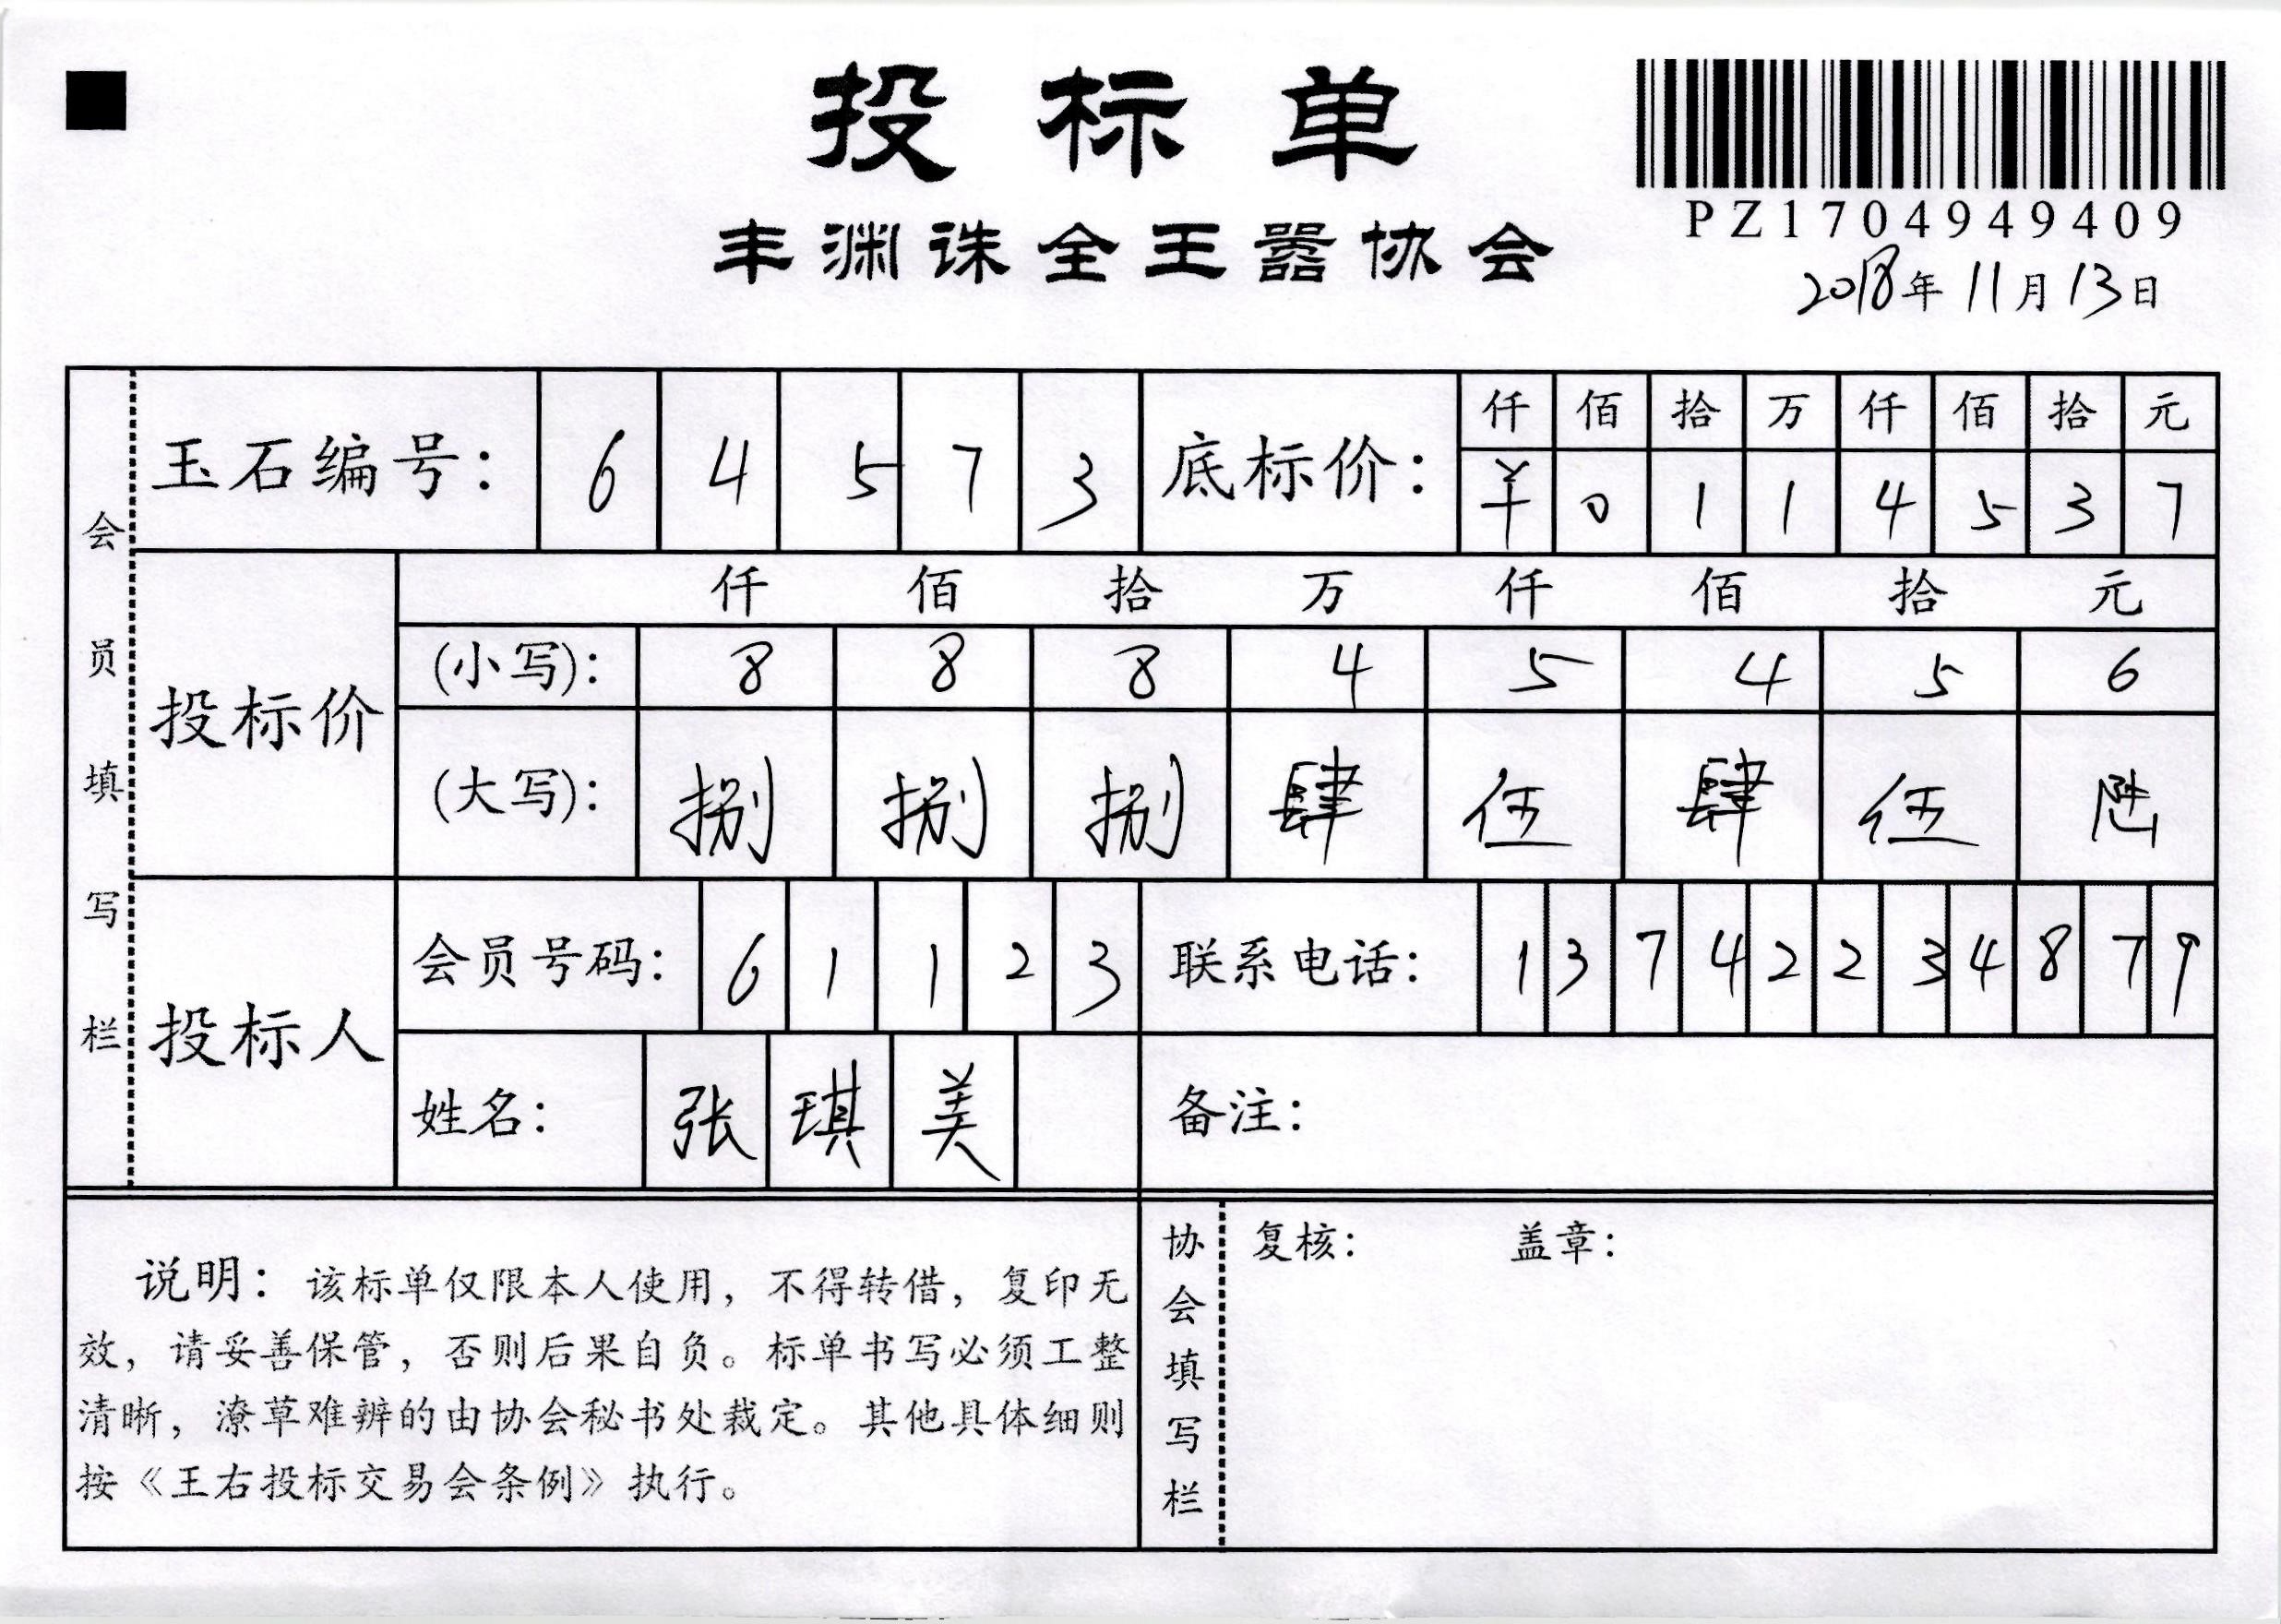 投标单
PZ1704949409
丰渊诛全王嚣协会
2018年11月13日
会员填写栏
玉石编号: 6 4 5 7 3
底标价:
仟 佰 拾 万 仟 佰 拾 元
¥ 0 1 1 4 5 3 7
投标价
仟 佰 拾 万 仟 佰 拾 元
(小写): 8 8 8 4 5 4 5 6
(大写): 捌 捌 捌 肆 伍 肆 伍 陆
投标人
会员号码: 6 1 1 2 3
联系电话: 1 3 7 4 2 2 3 4 8 7 9
姓名: 张 琪 美
备注:
说明: 该标单仅限本人使用, 不得转借, 复印无
效, 请妥善保管, 否则后果自负。标单书写必须工整
清晰, 潦草难辨的由协会秘书处裁定。其他具体细则
按《王右投标交易会条例》执行。
协会填写栏
复核: 盖章: